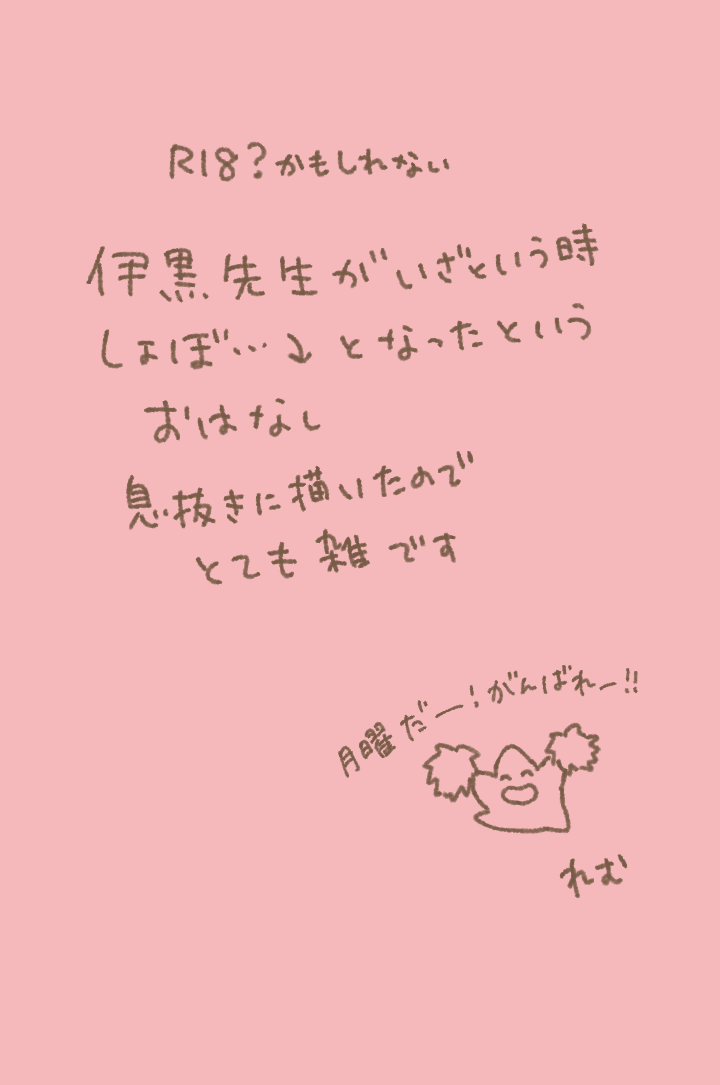 R18?かもしれない
伊黒先生がいざという時
しょぼ…↓となったという
おはなし
息抜きに描いたので
とても雑です
月曜だー!がんばれー!!
れむ